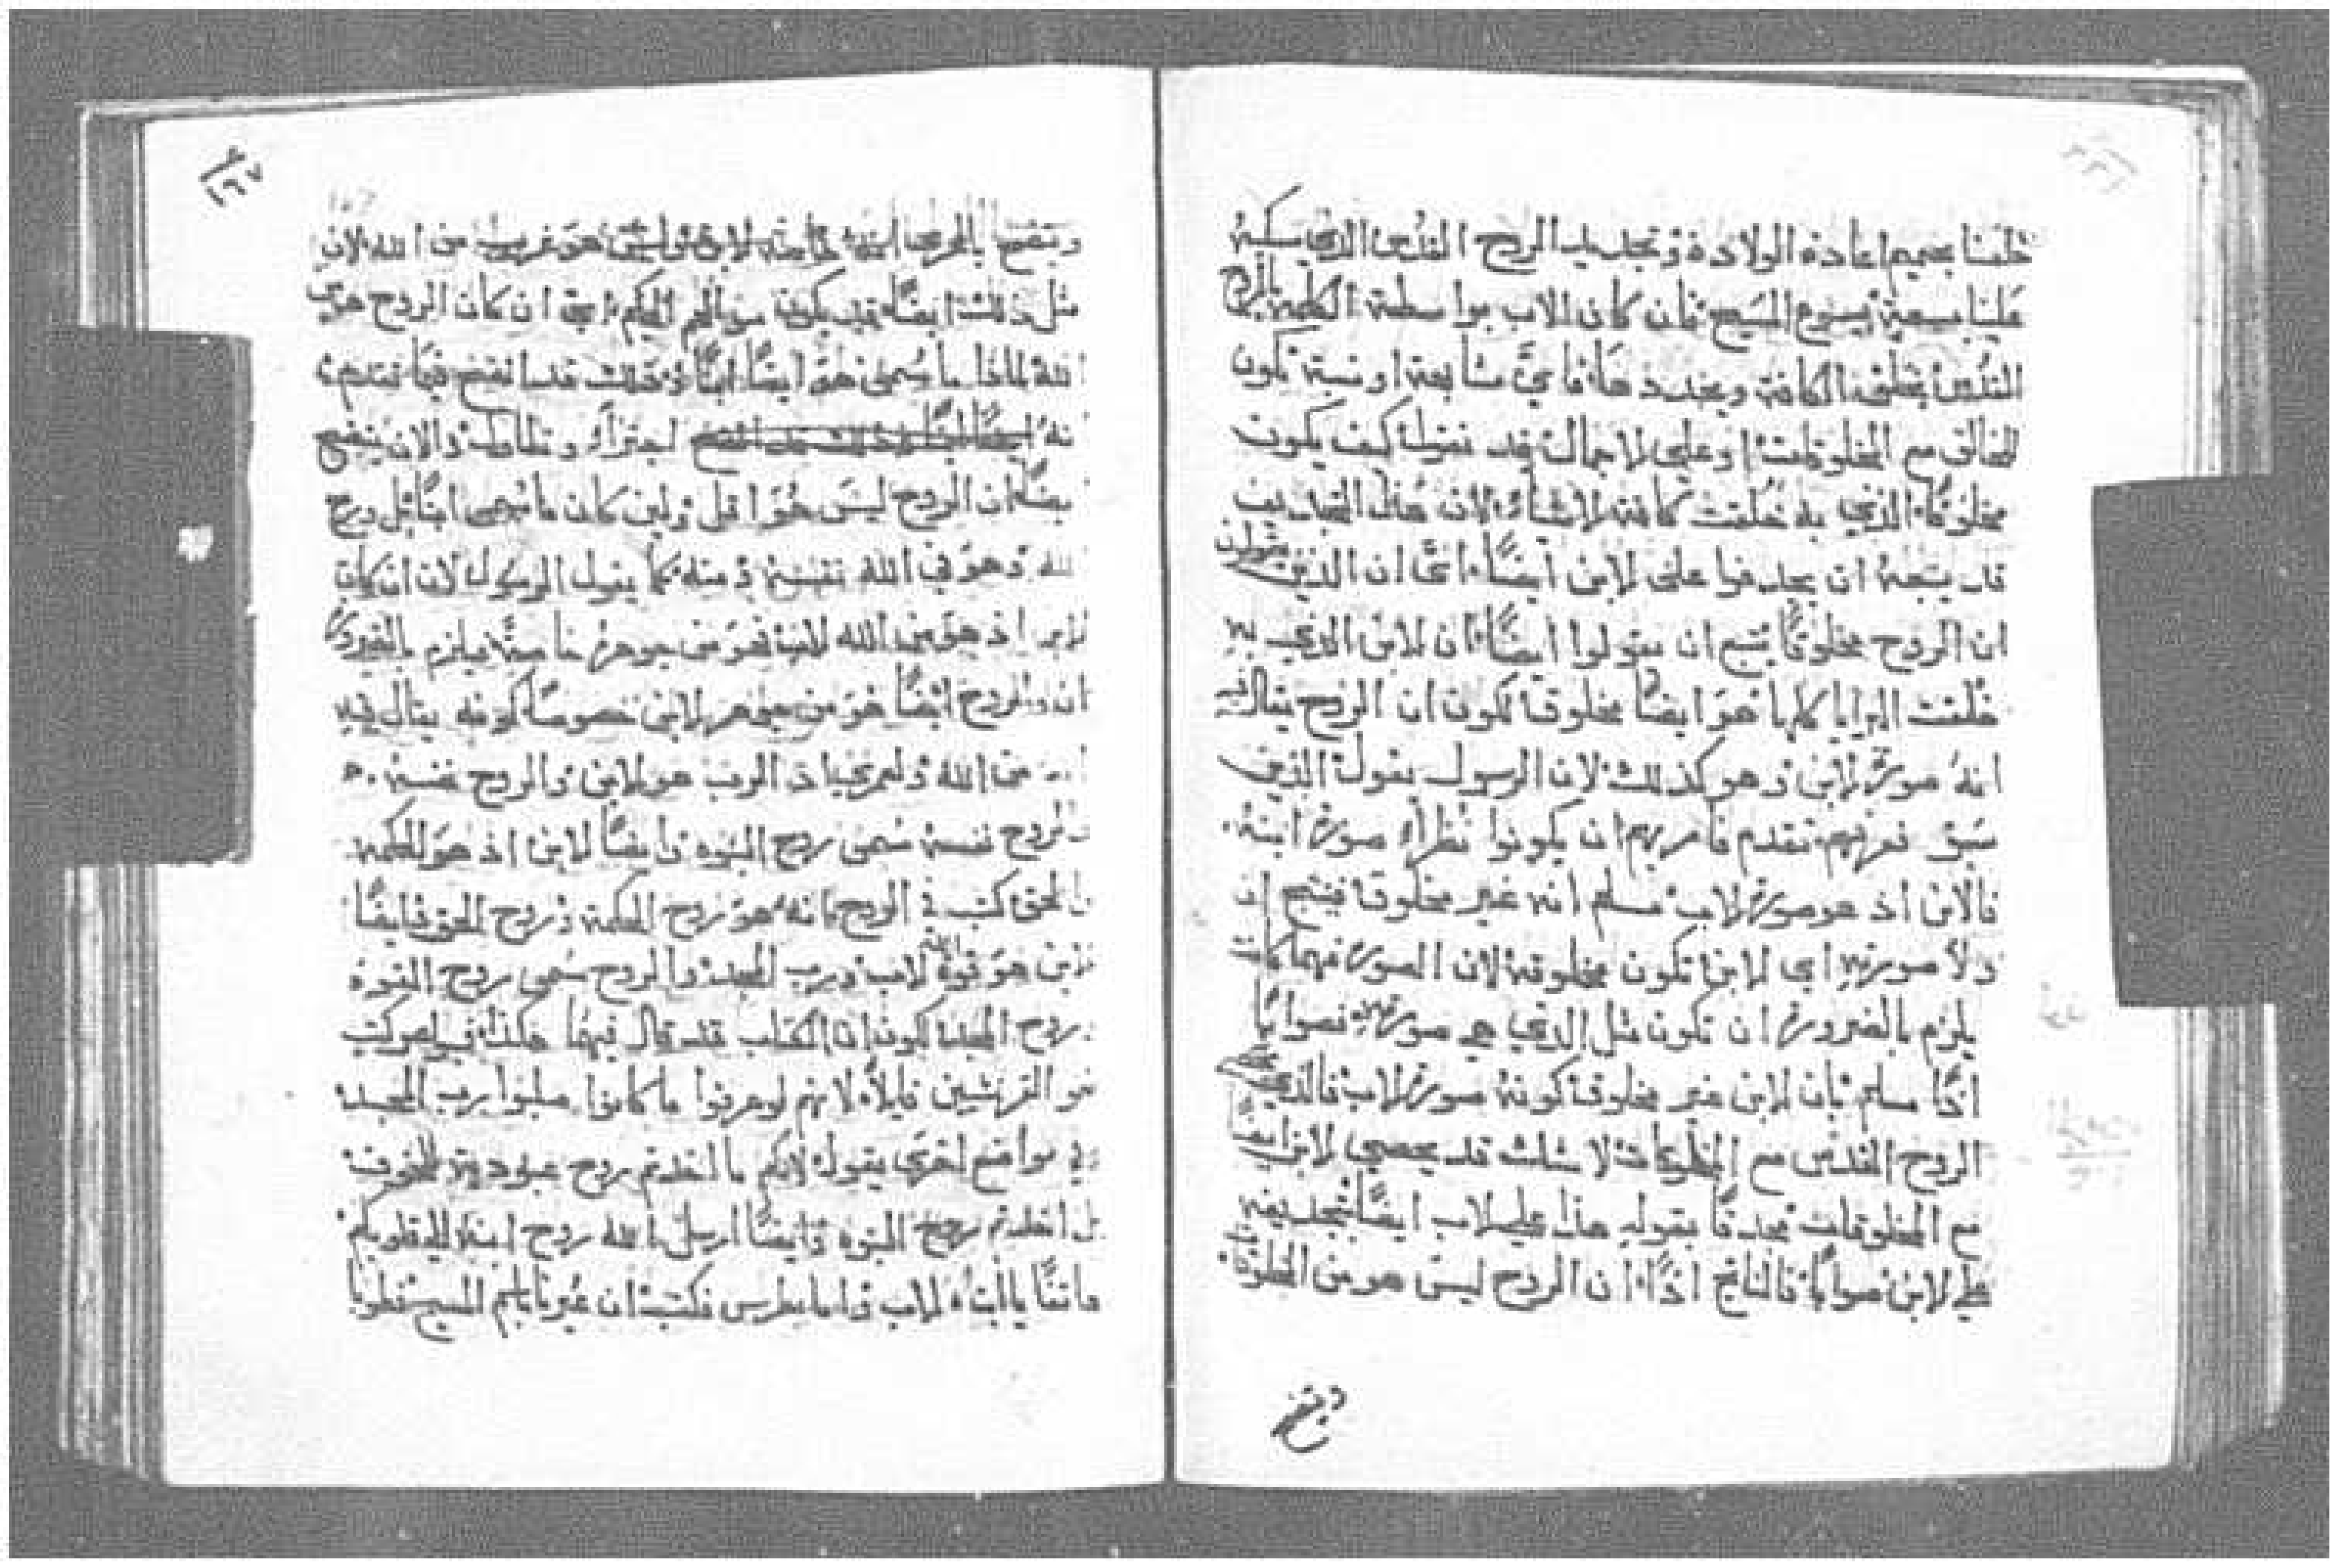 خلصنا بحميم اعادة الولادة وتجديد الروح القدس الذي سكبه
علينا بسعة يسوع المسيح فان كان الاب بواسطة الكلمة بالروح
القدس يخلق الكافة ويجددها فاي مشابهة او نسبة تكون
للخالق مع المخلوقات او على الاجمال قد نقول كيف يكون
مخلوقا الذي به خلقت كافة الاشياء لان هذا التجديف
قد يتجه ان يجدفوا على الابن ايضا اعني ان الذين يقولون
ان الروح مخلوقا يتبع ان يقولوا ايضا ان الابن الذي به
خلقت البرايا كلها هو ايضا مخلوقا لكون ان الروح يقال فيه
انه صورة الابن وهو كذلك لان الرسول يقول الذين
سبق فعرفهم تقدم فامرهم ان يكونوا نظراء صورة ابنه
فالابن اذ هو صورة الاب مسلم انه غير مخلوقا فينتج ان
ولا صورته اي الابن تكون مخلوقة لان الصورة مهما كانت
يلزم بالضرورة ان تكون مثل الذي هي صورته فصوابا
اذا مسلم بان الابن غير مخلوقا كونه صورة الاب فالذي
الروح القدس مع المخلوقات لا شك قد يحصي الابن ايضا
مع المخلوقات مجدفا بقوله هذا على الاب ايضا بتجديفه
على الابن صوابا فالناتج اذا ان الروح ليس هو من
ويتضح
١٦٧
167
ويتضح من الله لان
مثل ذلك ايضا قد يكون ان كان الروح هو من
الله لماذا ما سمي هو ايضا ابنا فذلك قد اتضح فيما تقدم
انه ايضا ابنا فذلك قد اتضح والان يتضح
ايضا ان الروح ليس هو اقل ولين كان ما سمي ابنا بل روح
الله وهو في الله نفسه ومنه كما يقول الرسول لان ان كان
الابن اذ هو من الله الاب فهو من جوهره خاصة فيلزم بالضرورة
ان الروح ايضا هو من جوهر الابن خصوصا كونه يقال فيه
من الله الرب هو الابن والروح نفسه
الروح نفسه سمي روح البنوة وايضا الابن اذ هو الحكمة
والحق كتب في الروح بانه هو روح الحكمة وروح الحق وايضا
الابن هو قوة الله الاب ورب المجد والروح سمي روح القوة
وروح المجد لكون ان الكتاب قد قال فيهما هكذا فبولص كتب
نحو القرنثيين قايلا لانهم لو عرفوا ما كانوا صلبوا رب المجد
وفي مواضع اخرى يقول لانكم ما اخذتم روح عبودية للخوف
بل اخذتم روح البنوة وايضا ارسل الله روح ابنه الى قلوبكم
هاتفا يا ابتاه الاب واما بطرس فكتب ان عيرتم باسم المسيح فطوبا